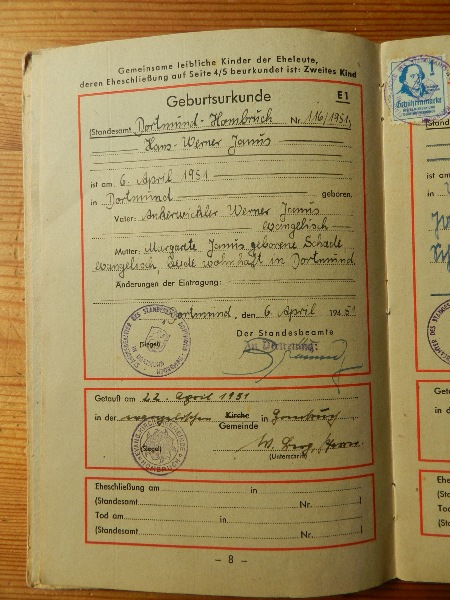 Gemeinsame leibliche Kinder der Eheleute,
deren Eheschließung auf Seite 4/5 beurkundet ist: Zweites Kind
Geburtsurkunde E1
(Standesamt Dortmund-Hombruch Nr. 116/1951.)
Hans-Werner Janus
ist am 6. April 1951
in Dortmund geboren.
Vater: Ankerwickler Werner Janus
evangelisch
Mutter: Margarete Janus geborene Schade
evangelisch, beide wohnhaft in Dortmund.
Änderungen der Eintragung:
Dortmund, den 6. April 1951
Der Standesbeamte
(Siegel) In Vertretung:
Getauft am 22. April 1951
in der evangelischen Kirche in Hombruch
Gemeinde
(Siegel)
(Unterschrift)
Eheschließung am in
(Standesamt Nr. )
Tod am in
(Standesamt Nr. )
– 8 –
Gebührenmarke
1